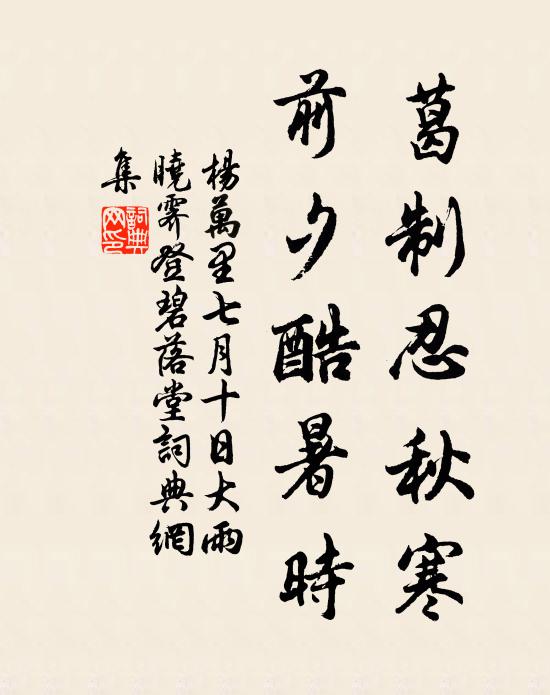 葛制忍秋寒
前夕酷暑時
楊萬里七月十日大雨
曉霽登碧落堂詞典網
集
詞典網印